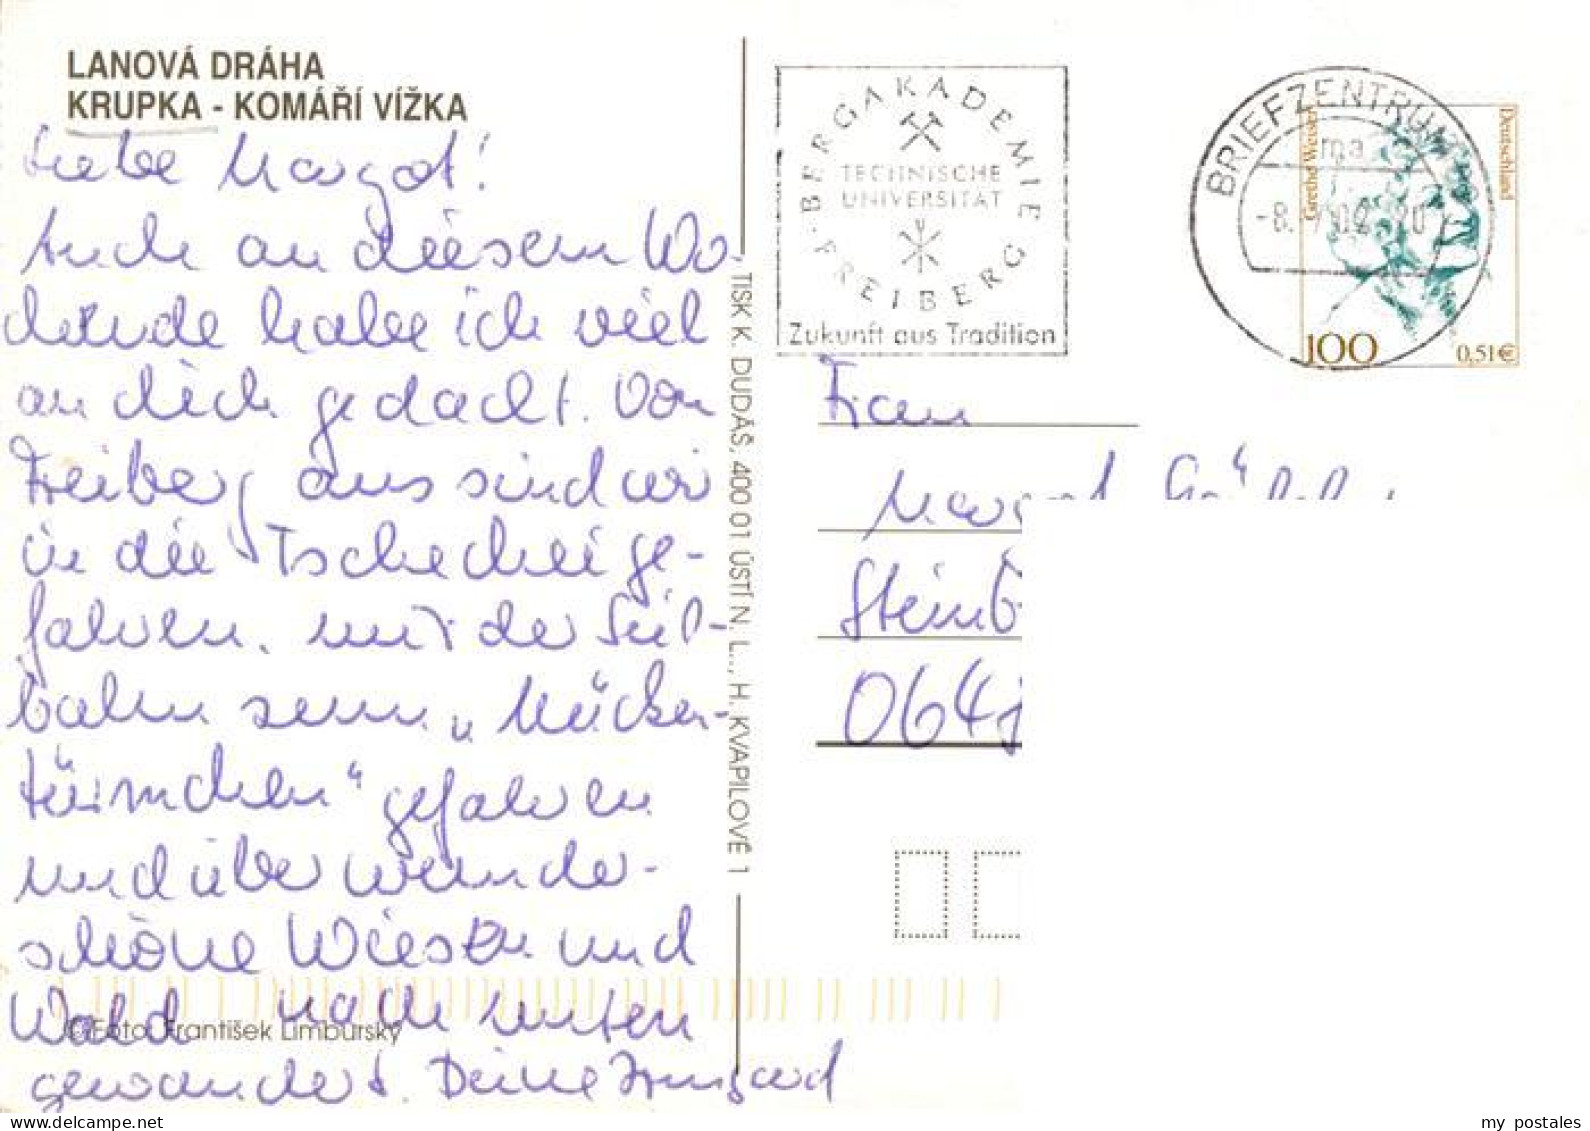 LANOVÁ DRÁHA
KRUPKA - KOMÁŘÍ VÍŽKA
Liebe Margot!
Auch an diesem Wo-
chende habe ich viel
an dich gedacht. Von
Freiberg aus sind wir
in die Tschechei ge-
fahren, mit der Seil-
bahn zum „Mücken-
türmchen“ gefahren
und über wunder-
schöne Wiesen und
Wald nach unten
gewandert. Deine Irmgard
© Foto: František Limburský
TISK K. DUDÁŠ, 400 01 ÚSTÍ N. L., H. KVAPILOVÉ 1
BERGAKADEMIE
FREIBERG
TECHNISCHE
UNIVERSITÄT
Zukunft aus Tradition
BRIEFZENTRUM
Grethe Weiser
Deutschland
100
0,51€
Frau
Margot
Steinb
064
my postales
www.delcampe.net